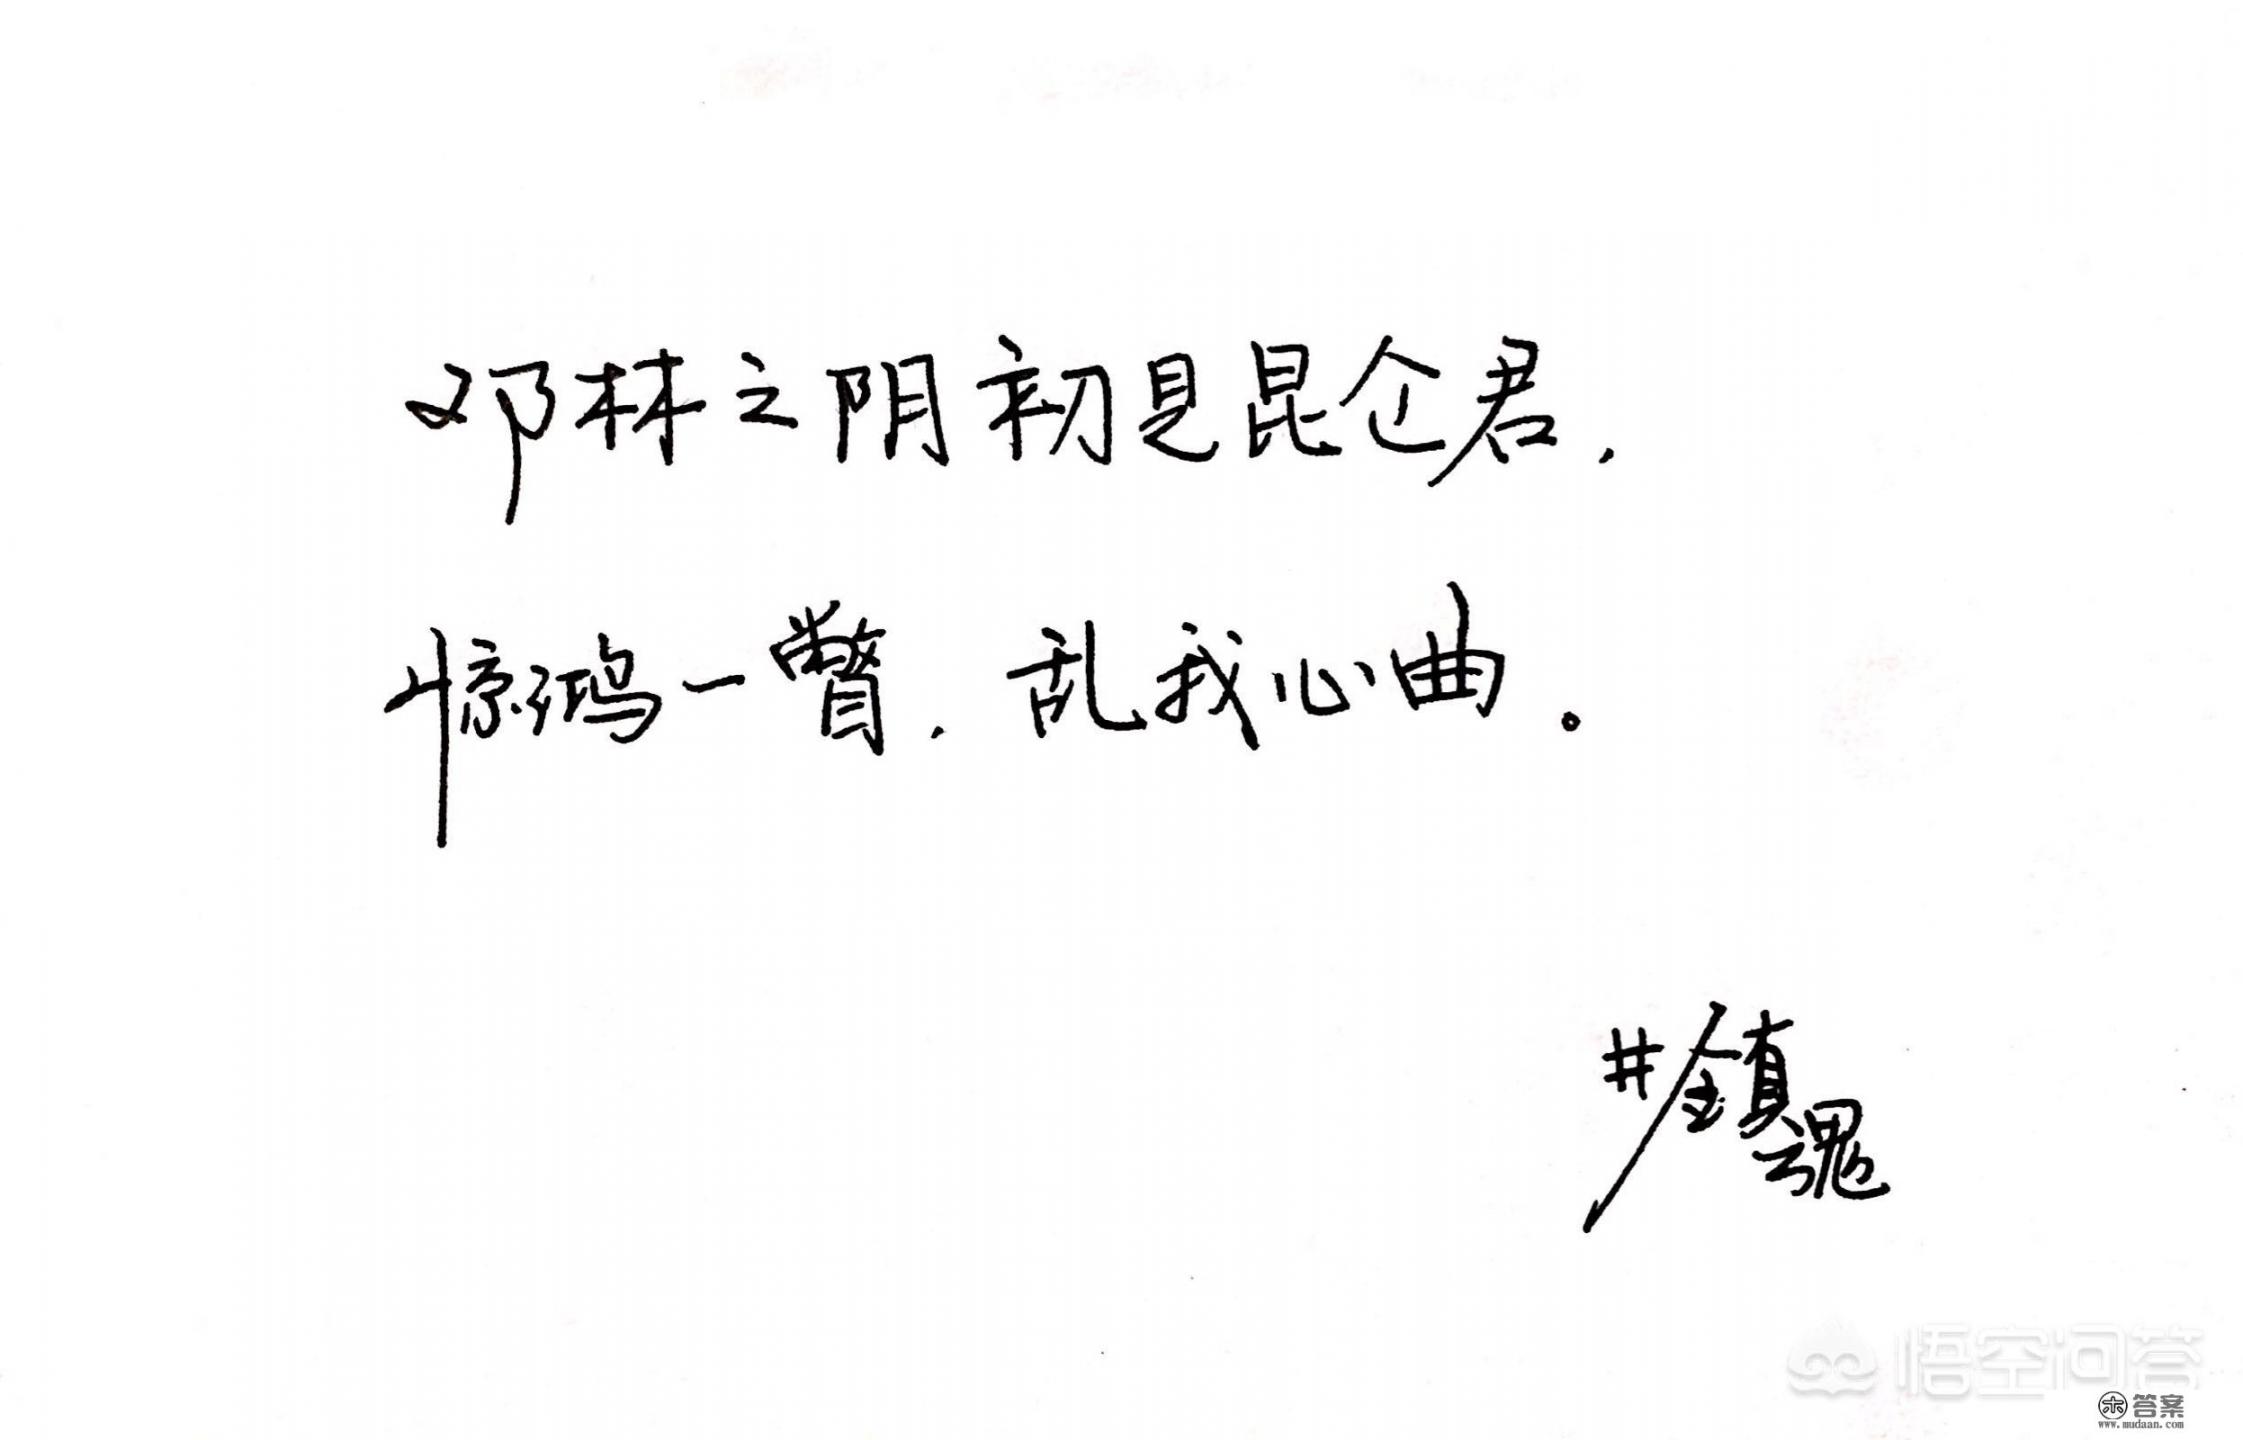 邓林之阴初见昆仑君，
惊鸿一瞥，乱我心曲。
#镇魂
悟空问答
答案
www.mudaan.com